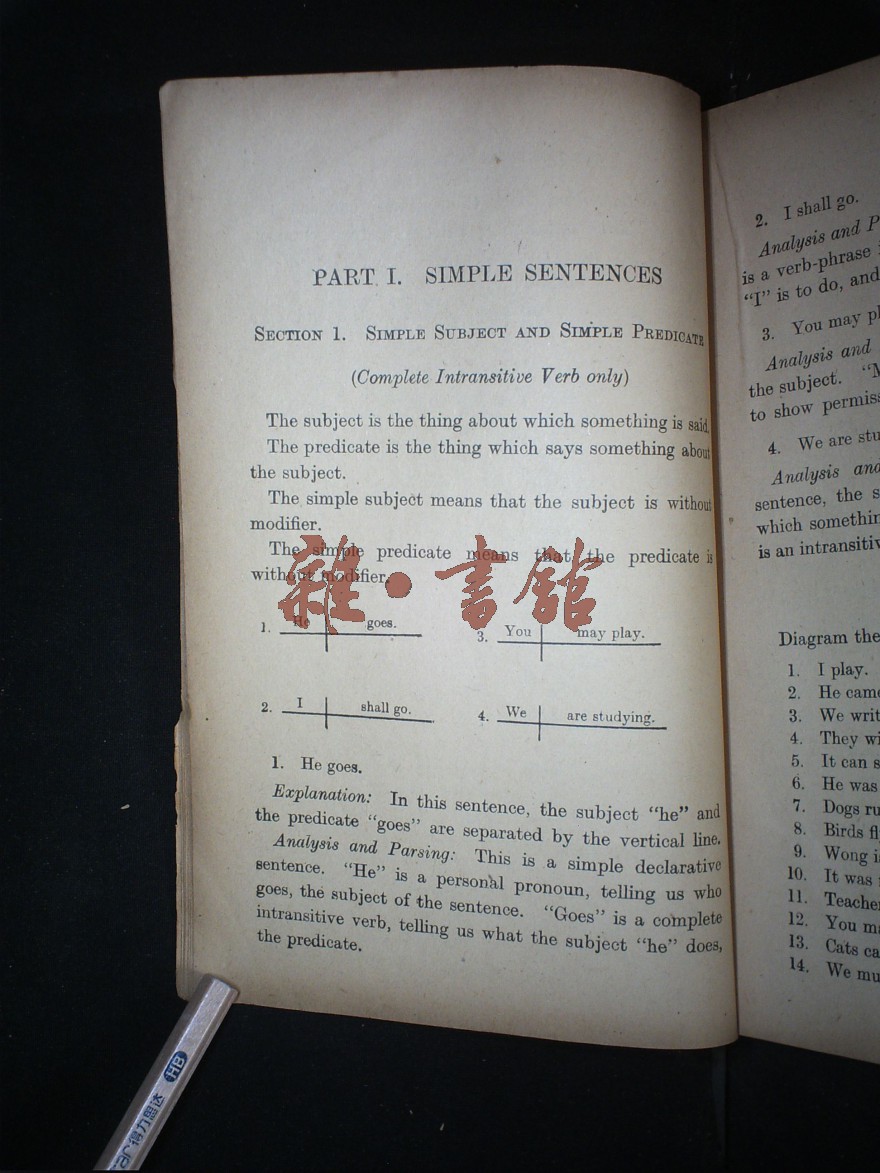 PART I. SIMPLE SENTENCES
SECTION 1. SIMPLE SUBJECT AND SIMPLE PREDICATE
(Complete Intransitive Verb only)
The subject is the thing about which something is said.
The predicate is the thing which says something about
the subject.
The simple subject means that the subject is without
modifier.
The simple predicate means that the predicate is
without modifier.
雜·書館
1. He goes.
3. You may play.
2. I shall go.
4. We are studying.
1. He goes.
Explanation: In this sentence, the subject "he" and
the predicate "goes" are separated by the vertical line.
Analysis and Parsing: This is a simple declarative
sentence. "He" is a personal pronoun, telling us who
goes, the subject of the sentence. "Goes" is a complete
intransitive verb, telling us what the subject "he" does,
the predicate.
2. I shall go.
Analysis and P
is a verb-phrase
"I" is to do, and
3. You may pl
Analysis and
the subject. "M
to show permiss
4. We are stu
Analysis and
sentence, the s
which somethin
is an intransitiv
Diagram the
1. I play.
2. He came
3. We writ
4. They wi
5. It can s
6. He was
7. Dogs ru
8. Birds fl
9. Wong i
10. It was
11. Teache
12. You m
13. Cats ca
14. We mu
得力思达 HB